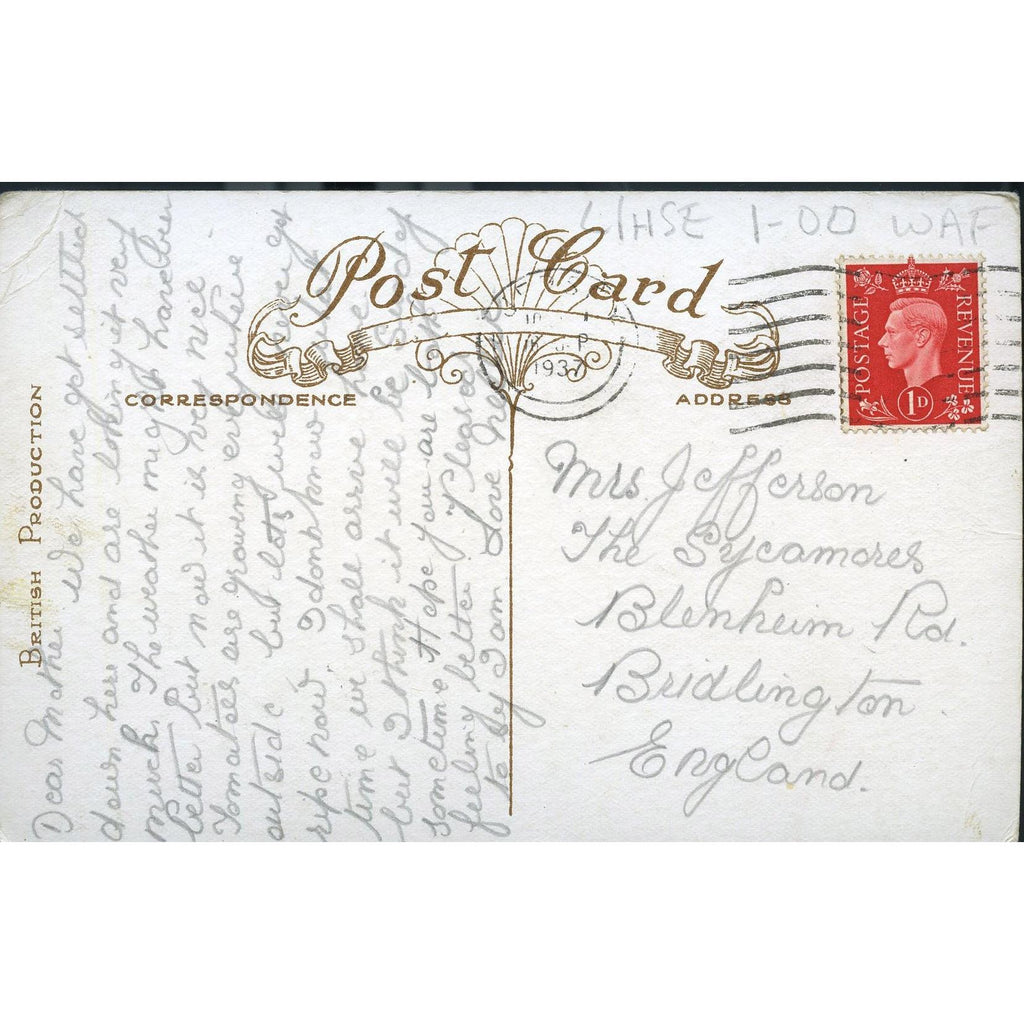 L/HSE 1-00 WAF
Post Card
CORRESPONDENCE
ADDRESS
BRITISH PRODUCTION
POSTAGE REVENUE
1D
1937
Mrs Jefferson
The Sycamores
Blenheim Rd.
Bridlington
England.
Dear Mother We have got settled
down here and are liking it very
much. The weather might have been
better but now it is very nice
Tomatoes are growing everywhere
outside but lots were
ripe now. I dont know
time we shall arrive
but I think it will be
sometime Hope you are
feeling better. Please
I am Love